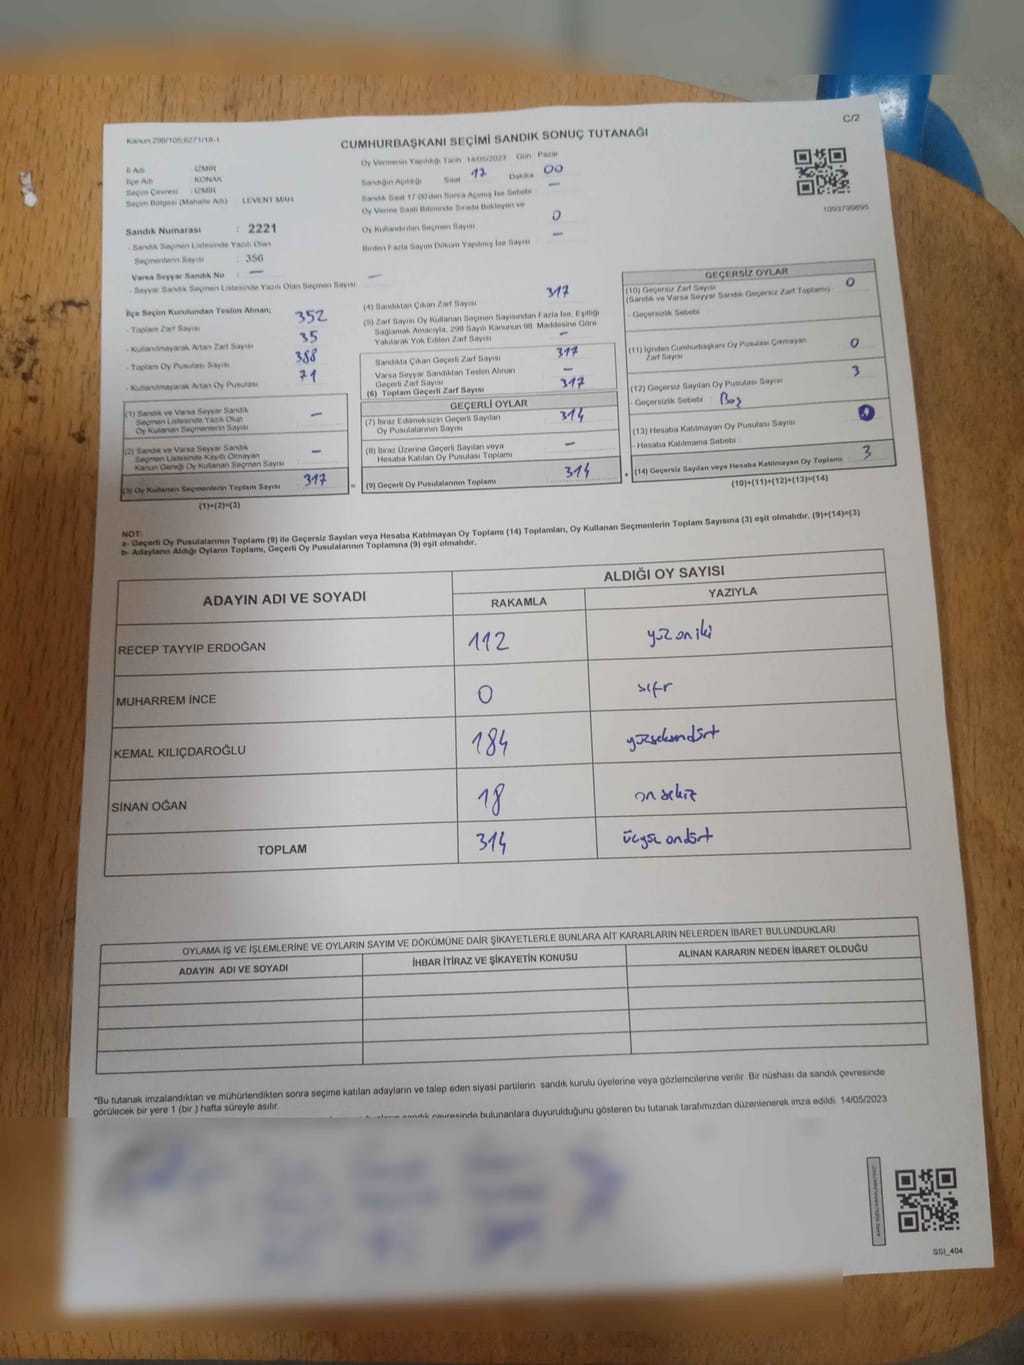 Kanun:298/105,6271/18-1
C/2
CUMHURBAŞKANI SEÇİMİ SANDIK SONUÇ TUTANAĞI
İl Adı : İZMİR
İlçe Adı : KONAK
Seçim Çevresi : İZMİR
Seçim Bölgesi (Mahalle Adı) LEVENT MAH.
Oy Vermenin Yapıldığı Tarih 14/05/2023 Gün Pazar
Sandığın Açıldığı Saat 17 Dakika 00
Sandık Saat 17.00'den Sonra Açılmış İse Sebebi —
Oy Verme Saati Bitiminde Sırada Bekleyen ve
Oy Kullandırılan Seçmen Sayısı 0
Birden Fazla Sayım Döküm Yapılmış İse Sayısı —
1093799895
Sandık Numarası : 2221
- Sandık Seçmen Listesinde Yazılı Olan
Seçmenlerin Sayısı : 356
Varsa Seyyar Sandık No : —
- Seyyar Sandık Seçmen Listesinde Yazılı Olan Seçmen Sayısı —
İlçe Seçim Kurulundan Teslim Alınan;
- Toplam Zarf Sayısı 352
- Kullanılmayarak Artan Zarf Sayısı 35
- Toplam Oy Pusulası Sayısı 388
- Kullanılmayarak Artan Oy Pusulası 71
(1) Sandık ve Varsa Seyyar Sandık
Seçmen Listesinde Yazılı Olup
Oy Kullanan Seçmenlerin Sayısı —
(2) Sandık ve Varsa Seyyar Sandık
Seçmen Listesinde Kayıtlı Olmayan
Kanun Gereği Oy Kullanan Seçmen Sayısı —
(3) Oy Kullanan Seçmenlerin Toplam Sayısı 317
(1)+(2)=(3)
(4) Sandıktan Çıkan Zarf Sayısı 317
(5) Zarf Sayısı Oy Kullanan Seçmen Sayısından Fazla İse, Eşitliği
Sağlamak Amacıyla, 298 Sayılı Kanunun 98. Maddesine Göre
Yakılarak Yok Edilen Zarf Sayısı —
Sandıkta Çıkan Geçerli Zarf Sayısı 317
Varsa Seyyar Sandıktan Teslim Alınan
Geçerli Zarf Sayısı —
(6) Toplam Geçerli Zarf Sayısı 317
GEÇERLİ OYLAR
(7) İtiraz Edilmeksizin Geçerli Sayılan
Oy Pusulalarının Sayısı 314
(8) İtiraz Üzerine Geçerli Sayılan veya
Hesaba Katılan Oy Pusulası Toplamı —
= (9) Geçerli Oy Pusulalarının Toplamı 314
GEÇERSİZ OYLAR
(10) Geçersiz Zarf Sayısı 0
(Sandık ve Varsa Seyyar Sandık Geçersiz Zarf Toplamı)
- Geçersizlik Sebebi
(11) İçinden Cumhurbaşkanı Oy Pusulası Çıkmayan
Zarf Sayısı 0
(12) Geçersiz Sayılan Oy Pusulası Sayısı 3
- Geçersizlik Sebebi : Boş
(13) Hesaba Katılmayan Oy Pusulası Sayısı
- Hesaba Katılmama Sebebi
+ (14) Geçersiz Sayılan veya Hesaba Katılmayan Oy Toplamı 3
(10)+(11)+(12)+(13)=(14)
NOT:
a- Geçerli Oy Pusulalarının Toplamı (9) ile Geçersiz Sayılan veya Hesaba Katılmayan Oy Toplamı (14) Toplamları, Oy Kullanan Seçmenlerin Toplam Sayısına (3) eşit olmalıdır. (9)+(14)=(3)
b- Adayların Aldığı Oyların Toplamı, Geçerli Oy Pusulalarının Toplamına (9) eşit olmalıdır.
ADAYIN ADI VE SOYADI ALDIĞI OY SAYISI
RAKAMLA YAZIYLA
RECEP TAYYİP ERDOĞAN 112 yüz on iki
MUHARREM İNCE 0 sıfır
KEMAL KILIÇDAROĞLU 184 yüzseksendört
SİNAN OĞAN 18 on sekiz
TOPLAM 314 üçyüz ondört
OYLAMA İŞ VE İŞLEMLERİNE VE OYLARIN SAYIM VE DÖKÜMÜNE DAİR ŞİKAYETLERLE BUNLARA AİT KARARLARIN NELERDEN İBARET BULUNDUKLARI
ADAYIN ADI VE SOYADI İHBAR İTİRAZ VE ŞİKAYETİN KONUSU ALINAN KARARIN NEDEN İBARET OLDUĞU
"Bu tutanak imzalandıktan ve mühürlendikten sonra seçime katılan adayların ve talep eden siyasi partilerin sandık kurulu üyelerine veya gözlemcilerine verilir. Bir nüshası da sandık çevresinde
görülecek bir yere 1 (bir ) hafta süreyle asılır.
sandık çevresinde bulunanlara duyurulduğunu gösteren bu tutanak tarafımızdan düzenlenerek imza edildi. 14/05/2023
SSI_404